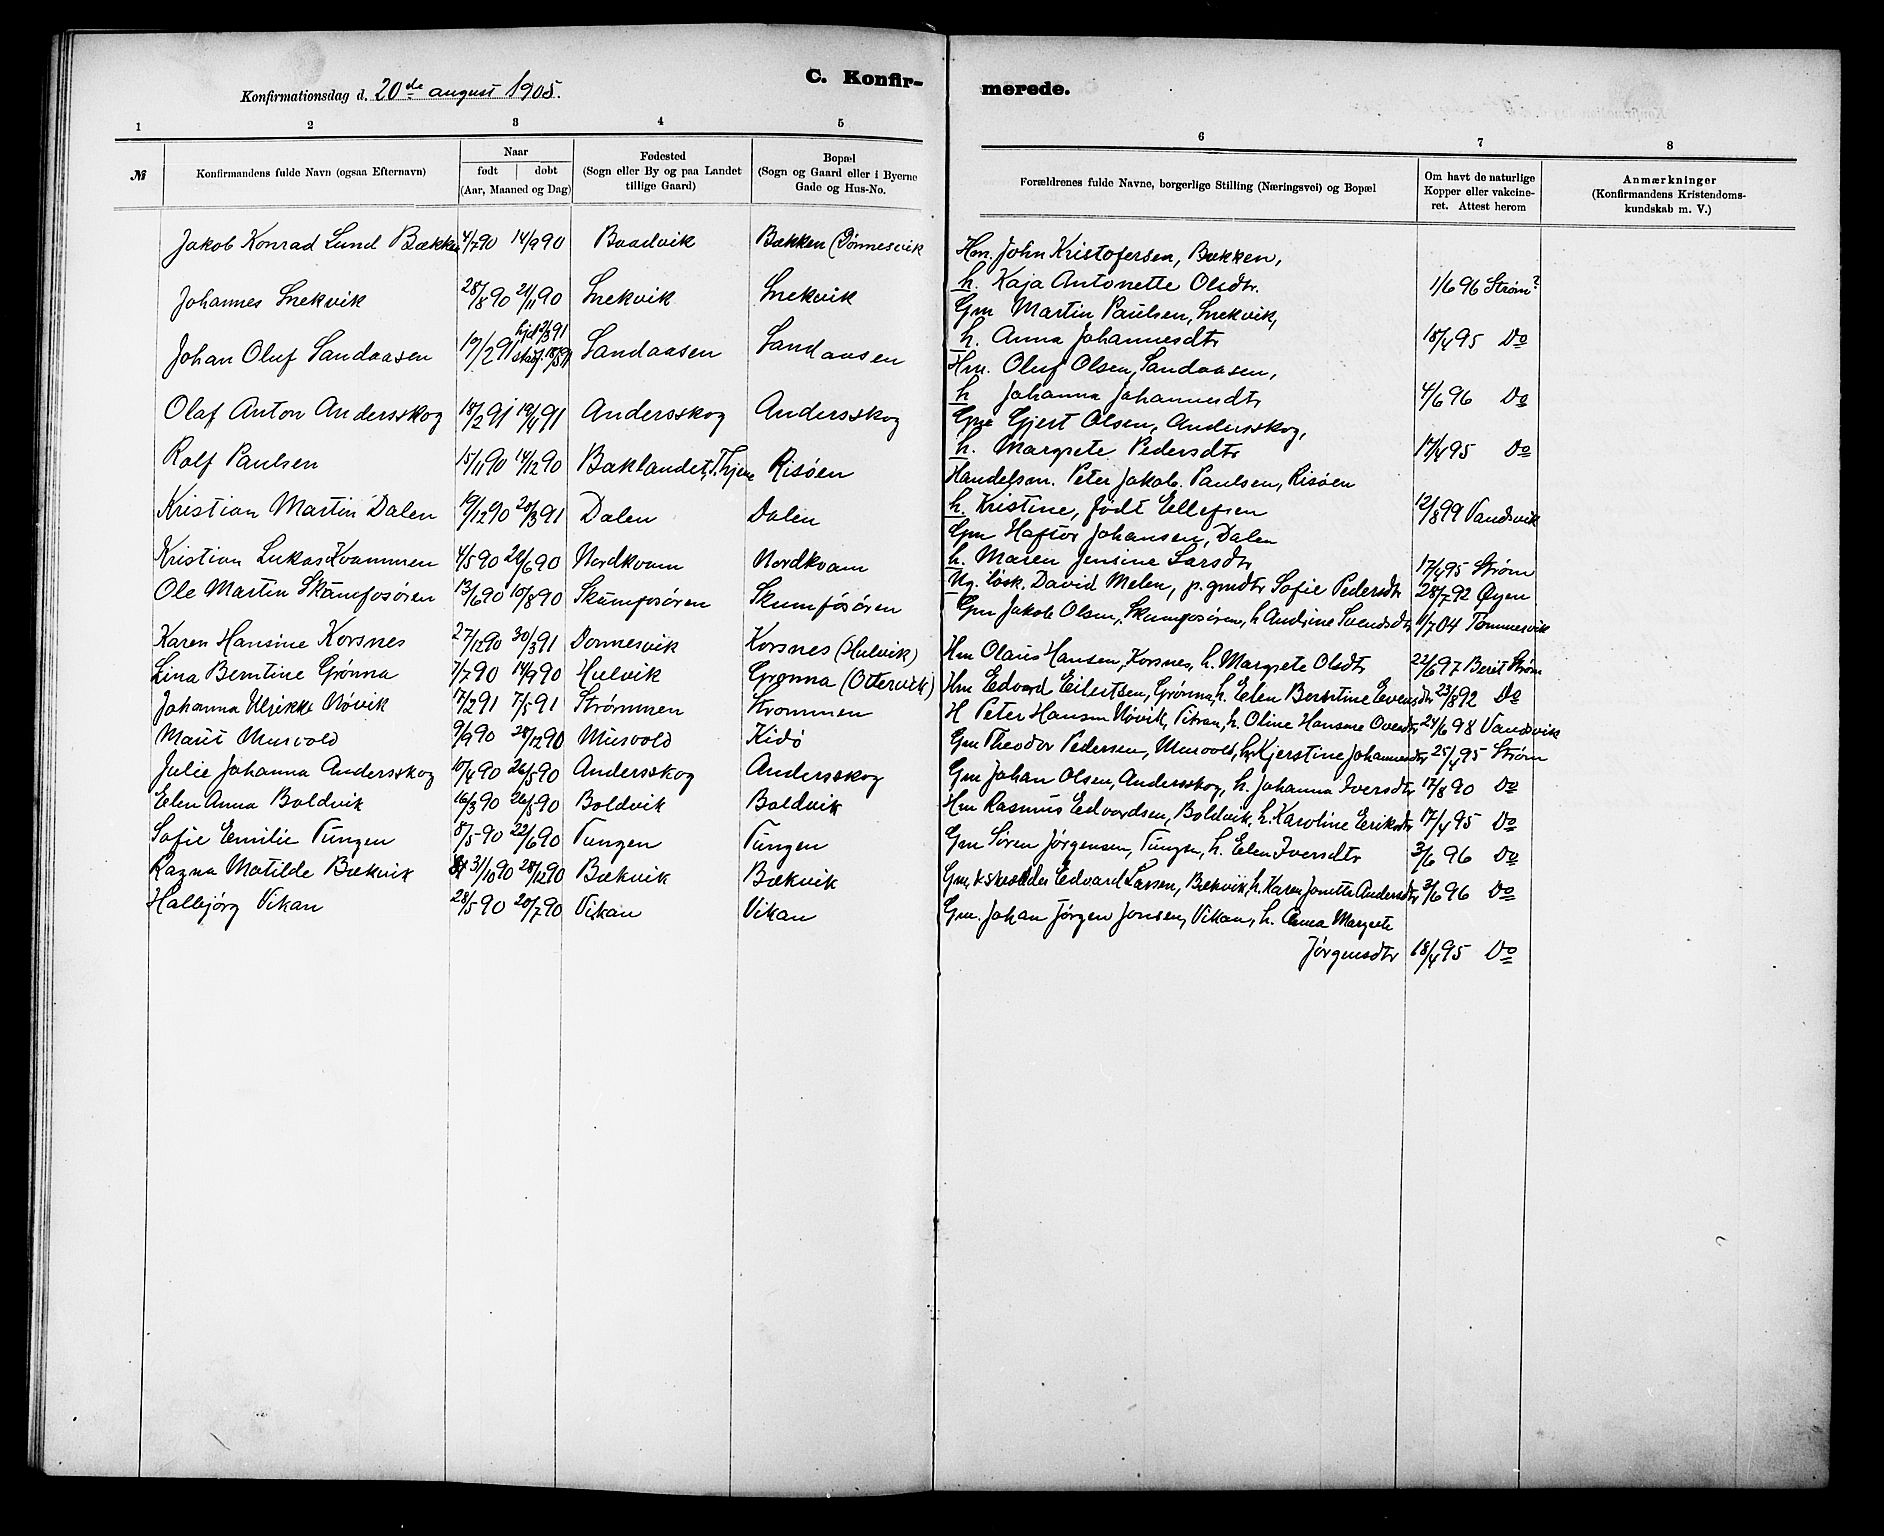 C. Konfir-
merede.
Konfirmationsdag d. 20de august 1905.
1 2 3 4 5
6 7 8
№
Konfirmandens fulde Navn (ogsaa Efternavn)
Naar
født døbt
(Aar, Maaned og Dag)
Fødested
(Sogn eller By og paa Landet
tillige Gaard)
Bopæl
(Sogn og Gaard eller i Byerne
Gade og Hus-No.
Forældrenes fulde Navne, borgerlige Stilling (Næringsvei) og Bopæl
Om havt de naturlige
Kopper eller vakcine-
ret. Attest herom
Anmærkninger
(Konfirmandens Kristendoms-
kundskab m. V.)
Jakob Konrad Lund Bækken 4/7 90 14/9 90 Baadvik Bækken (Dönnesvik
Johannes Snekvik 28/8 90 2/11 90 Snekvik Snekvik
Johan Oluf Sandaasen 19/2 91 hjd 2/3 91 stadf. 18/5 91 Sandaasen Sandaasen
Olaf Anton Andersskog 18/2 91 19/4 91 Andersskog Andersskog
Rolf Paulsen 15/11 90 14/12 90 Baklandet, Thjem Risöen
Kristian Martin Dalen 19/12 90 28/3 91 Dalen Dalen
Kristian Lukas Kvammen 4/5 90 22/6 90 Nordkvam Nordkvam
Ole Martin Skumfosören 13/6 90 10/8 90 Skumfosören Skumfosören
Karen Hansine Korsnes 27/12 90 30/3 91 Donnesvik Korsnes (Hulvik)
Lina Berntine Grönna 7/7 90 14/9 90 Hulvik Grønna (Ottervik)
Johanna Ulrikke Növik 17/2 91 7/5 91 Strömmen Strommen
Marit Musvold 9/9 90 28/12 90 Musvold Kidö
Julie Johanna Andersskog 10/4 90 26/5 90 Andersskog Andersskog
Elen Anna Boldvik 16/3 90 26/5 90 Boldvik Boldvik
Sofie Emilie Tungen 8/5 90 22/6 90 Tungen Tungen
Ragna Matilde Bækvik 31/10 90 28/12 90 Bækvik Bækvik
Halbjörg Vikan 28/5 90 20/7 90 Vikan Vikan
Hm. John Kristofersen, Bækken,
h. Kaja Antonette Olsdtr. 1/6 96 Strøm?
Gm Martin Paulsen, Snekvik,
h. Anna Johannesdtr 18/4 95 Do
Hm. Oluf Olsen, Sandaasen,
h Johanna Johannesdtr 4/6 96 Do
Gm Gjert Olsen, Andersskog,
h. Margrete Pedersdtr 17/4 95 Do
Handelsm. Peter Jakob Paulsen, Risöen
h. Kristine, född Ellefsen 12/8 99 Vandsvik
Gm Haftor Johansen, Dalen
h. Maren Jensine Larsdtr 17/4 95 Ström
Ug. lösk. David Melen, p. grndtr Sofie Pedersdtr 28/7 92 Øyen
Gm Jakob Olsen, Skumfosören, h Andrine Svendsdtr 11/7 04 Tommesvik
Hm Olaus Hansen, Korsnes, h. Margrete Olsdtr 22/6 97 Berit Ström
Hm Edvard Eilertsen, Grönna, h. Elen Berntine Evensdtr 23/8 92 Do
H Peter Hansen Növik, Titran, h. Oline Hansine Ovesdtr 24/6 98 Vandsvik
Gm Theodor Pedersen, Musvold, h Kjerstine Johannesdtr 25/4 95 Ström
Gm Johan Olsen, Andersskog, h. Johanna Iversdtr 17/8 90 Do
Hm Rasmus Edvardsen, Boldvik, h. Karoline Eriksdtr 17/4 95 Do
Gm Sören Jörgensen, Tungen, h. Elen Iversdtr 3/6 96 Do
Gm, Edvard Larsen, Bækvik, h. Karen Janette Andersdtr 3/6 96 Do
Gm. Johan Jörgen Jonsen, Vikan, h. Anna Margrete
Jörgensdtr 18/4 95 Do